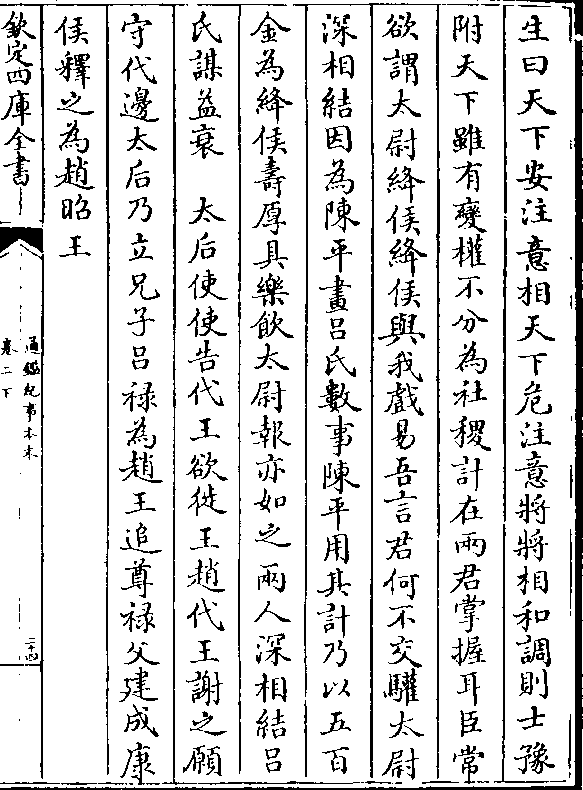 生曰天下安注意相天下危注意將將相和調則士豫
附天下雖有變權不分為社稷計在兩君掌握耳臣常
欲謂太尉絳侯絳侯與我戲易吾言君何不交驩太尉
深相結因為陳平畫吕氏數事陳平用其計乃以五百
金為絳侯壽厚具樂飲太尉報亦如之兩人深相結吕
氏謀益衰　太后使使告代王欲徙王趙代王謝之願
守代邊太后乃立兄子吕禄為趙王追尊禄父建成康
侯釋之為趙昭王
欽定四庫全書
通鑑紀事本末
卷二下
二十四